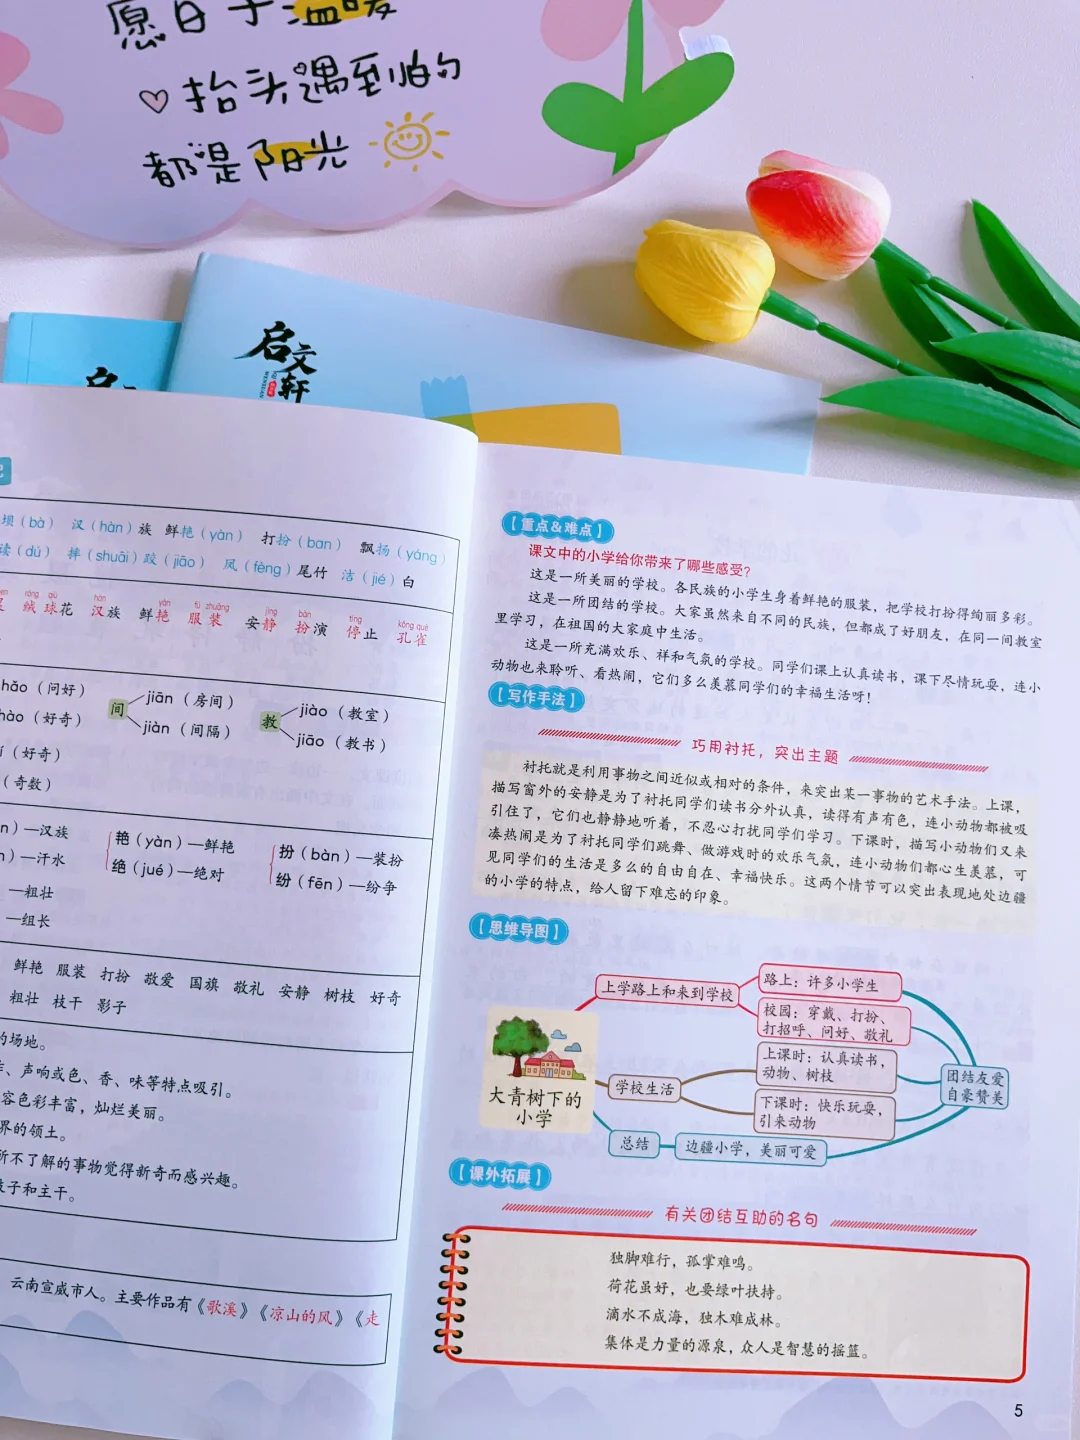 愿日子温暖
抬头遇到的
都是阳光
启文轩
坝(bà) 汉(hàn)族 鲜艳(yàn) 打扮(ban) 飘扬(yáng)
读(dú) 摔(shuāi)跤(jiāo) 凤(fèng)尾竹 洁(jié)白
róng qiú hàn yàn fú zhuāng jìng bàn tíng kǒng què
绒球花 汉族 鲜艳 服装 安静 扮演 停止 孔雀
hǎo(问好) 间 jiān(房间) 教 jiào(教室)
hào(好奇) jiàn(间隔) jiāo(教书)
(好奇)
(奇数)
—汉族 艳(yàn)—鲜艳 扮(bàn)—装扮
—汗水 绝(jué)—绝对 纷(fēn)—纷争
—粗壮
—组长
鲜艳 服装 打扮 敬爱 国旗 敬礼 安静 树枝 好奇
粗壮 枝干 影子
的场地。
、声响或色、香、味等特点吸引。
容色彩丰富,灿烂美丽。
界的领土。
所不了解的事物觉得新奇而感兴趣。
枝子和主干。
云南宣威市人。主要作品有《歌溪》《凉山的风》《走
【重点&难点】
课文中的小学给你带来了哪些感受?
这是一所美丽的学校。各民族的小学生身着鲜艳的服装,把学校打扮得绚丽多彩。
这是一所团结的学校。大家虽然来自不同的民族,但都成了好朋友,在同一间教室
里学习,在祖国的大家庭中生活。
这是一所充满欢乐、祥和气氛的学校。同学们课上认真读书,课下尽情玩耍,连小
动物也来聆听、看热闹,它们多么羡慕同学们的幸福生活呀!
【写作手法】
巧用衬托,突出主题
衬托就是利用事物之间近似或相对的条件,来突出某一事物的艺术手法。上课,
描写窗外的安静是为了衬托同学们读书分外认真,读得有声有色,连小动物都被吸
引住了,它们也静静地听着,不忍心打扰同学们学习。下课时,描写小动物们又来
凑热闹是为了衬托同学们跳舞、做游戏时的欢乐气氛,连小动物们都心生羡慕,可
见同学们的生活是多么的自由自在、幸福快乐。这两个情节可以突出表现地处边疆
的小学的特点,给人留下难忘的印象。
【思维导图】
大青树下的
小学
上学路上和来到学校
路上:许多小学生
校园:穿戴、打扮、
打招呼、问好、敬礼
学校生活
上课时:认真读书,
动物、树枝
下课时:快乐玩耍,
引来动物
总结
边疆小学,美丽可爱
团结友爱
自豪赞美
【课外拓展】
有关团结互助的名句
独脚难行,孤掌难鸣。
荷花虽好,也要绿叶扶持。
滴水不成海,独木难成林。
集体是力量的源泉,众人是智慧的摇篮。
5